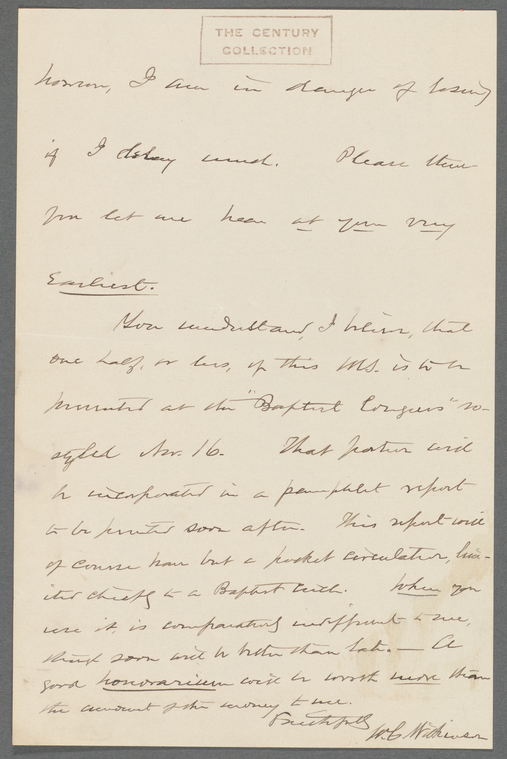 THE CENTURY
COLLECTION
however, I am in danger of losing
if I delay much. Please then
you let me hear at your very
Earliest.
You understand, I believe, that
one half, or less, of this MS. is to be
presented at the "Baptist Congress" so-
styled Nov. 16. That portion will
be incorporated in a pamphlet report
to be printed soon after. This report will
of course have but a pocket circulation, lim-
ited chiefly to a Baptist circle. When you
use it is comparatively indifferent to me,
though soon will be better than late. — A
good honorarium will be worth more than
the amount of the money to me.
Faithfully
W. C. Wilkinson